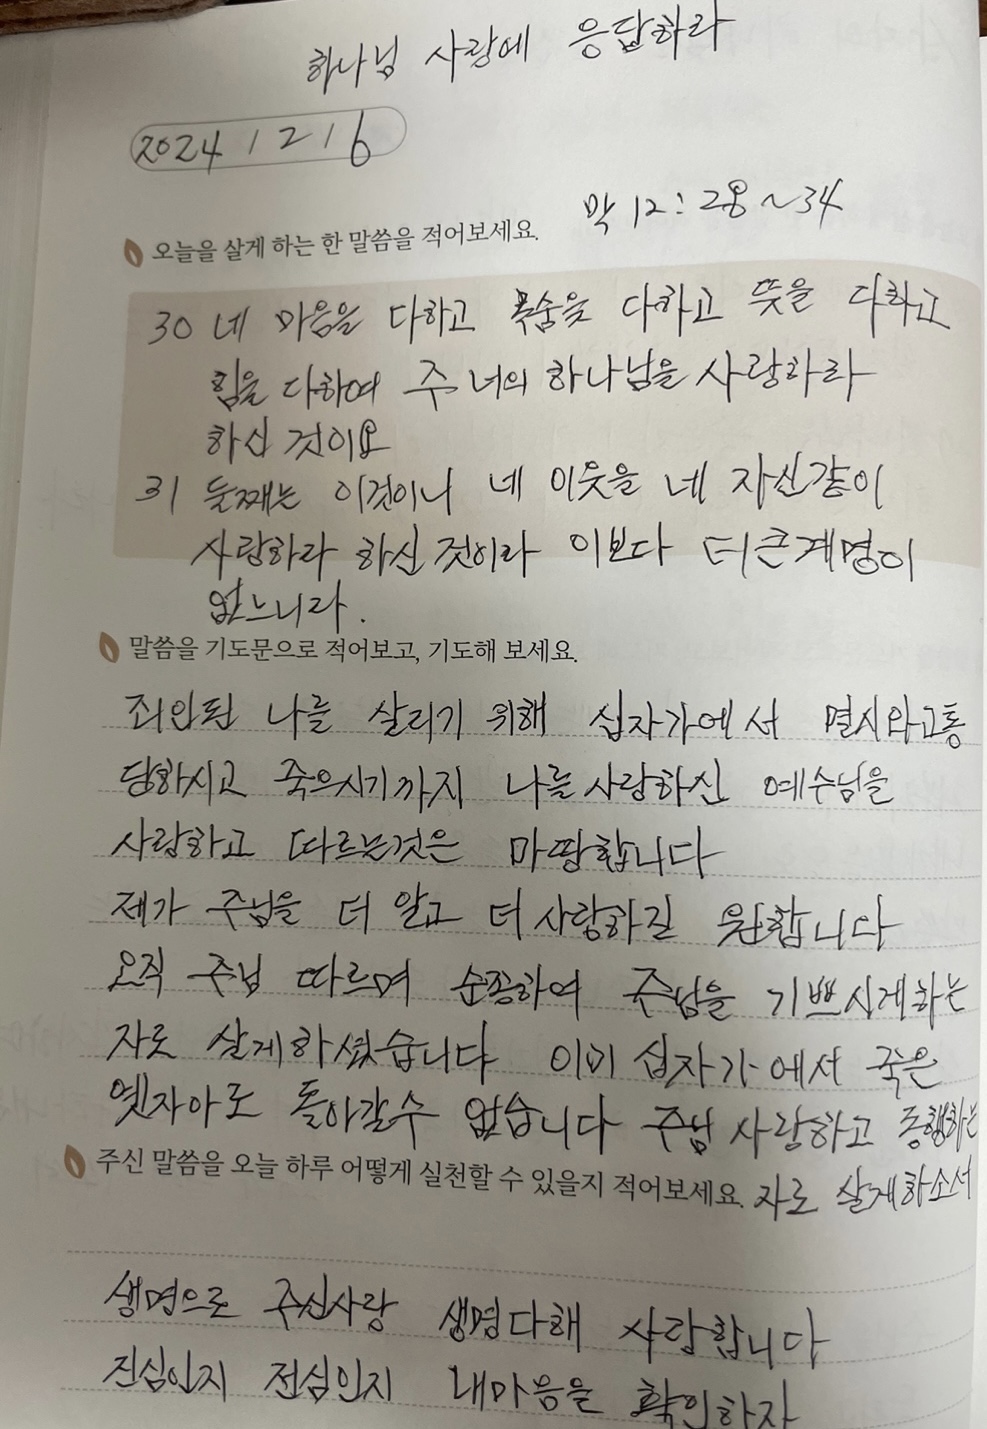 하나님 사랑에 응답하라
2024 / 2 / 6
막 12:28~34
오늘을 살게 하는 한 말씀을 적어보세요.
30 네 마음을 다하고 목숨을 다하고 뜻을 다하고
힘을 다하여 주 너의 하나님을 사랑하라
하신 것이요
31 둘째는 이것이니 네 이웃을 네 자신같이
사랑하라 하신 것이라 이보다 더 큰 계명이
없느니라.
말씀을 기도문으로 적어보고, 기도해 보세요.
죄인된 나를 살리기 위해 십자가에서 멸시와 고통
당하시고 죽으시기까지 나를 사랑하신 예수님을
사랑하고 따르는것은 마땅합니다
제가 주님을 더 알고 더 사랑하길 원합니다
오직 주님 따르며 순종하여 주님을 기쁘시게하는
자로 살게하셨습니다 이미 십자가에서 죽은
옛자아로 돌아갈수 없습니다 주님 사랑하고 동행하는
주신 말씀을 오늘 하루 어떻게 실천할 수 있을지 적어보세요. 자로 살게하소서
생명으로 주신사랑 생명다해 사랑합니다
진심인지 전심인지 내마음을 확인하자